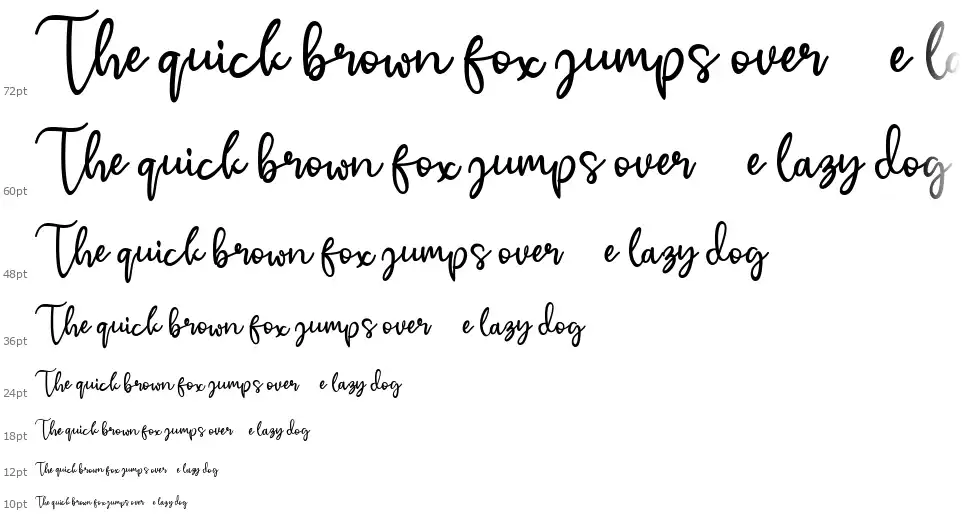 The quick brown fox jumps over e la
72pt
The quick brown fox jumps over e lazy dog
60pt
The quick brown fox jumps over e lazy dog
48pt
The quick brown fox jumps over e lazy dog
36pt
The quick brown fox jumps over e lazy dog
24pt
The quick brown fox jumps over e lazy dog
18pt
The quick brown fox jumps over e lazy dog
12pt
The quick brown fox jumps over e lazy dog
10pt